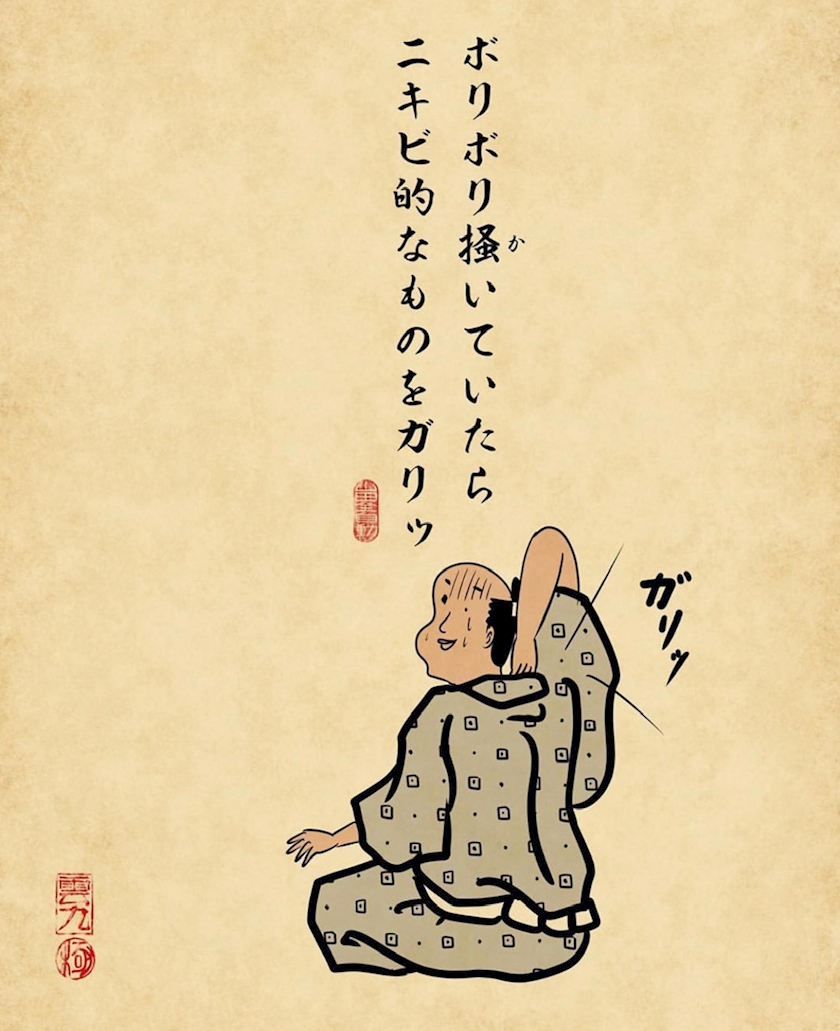 ボリボリ掻いていたら
か
ニキビ的なものをガリッ
ガリッ